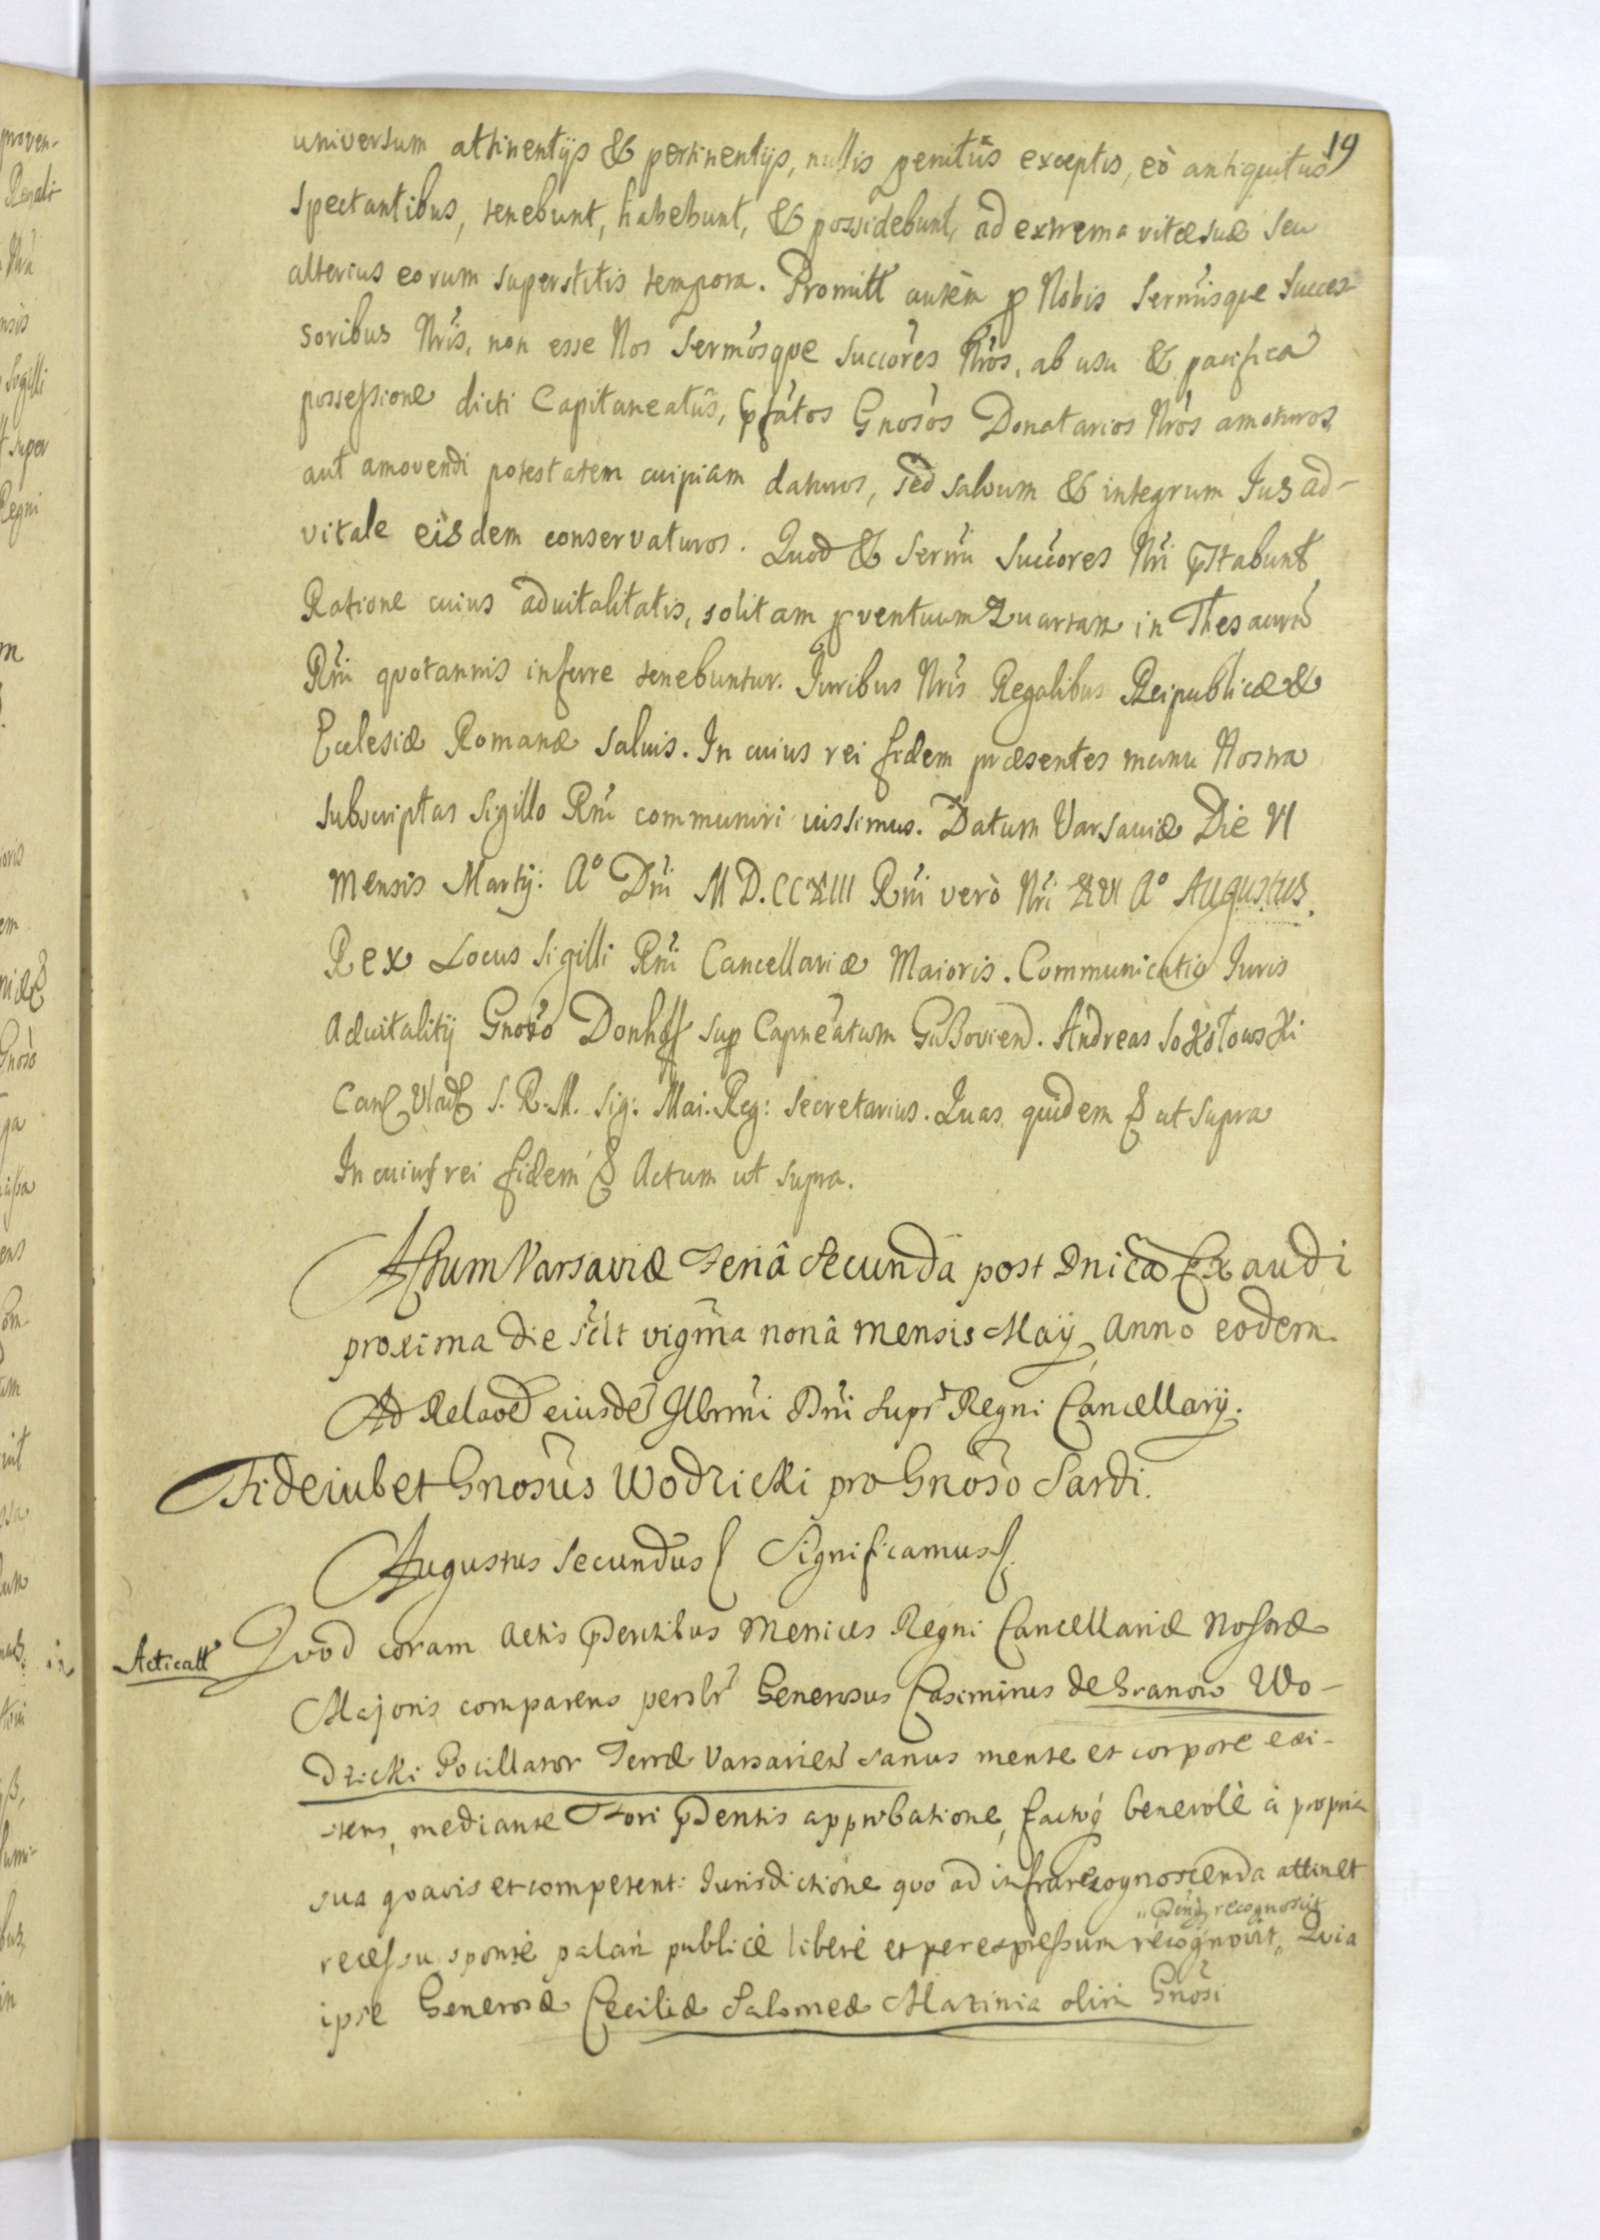 19
universum attinentijs & pertinentijs, nullis penitus exceptis, eò antiquitus
spectantibus, tenebunt, habebunt, & possidebunt, ad extrema vitæ suæ seu
alterius eorum superstitis tempora. Promitt autèm p Nobis Sermisque Succes
soribus Nris, non esse Nos Sermosque Succores Nros, ab usu & pacifica
possessione dicti Capitaneatus, pfatos Gnosos Donatarios Nros amoturos,
aut amovendi potestatem cuipiam daturos, sed salvum & integrum Jus ad-
vitale eisdem conservaturos. Quod & Sermi Succores Nri pstabunt
Ratione cuius advitalitatis, solitam pventuum Quartam in Thesaurũ
Rni quotannis inferre tenebuntur. Juribus Nris Regalibus Reipublicæ &
Ecclesiæ Romanæ salvis. In cuius rei fidem præsentes manu Nostra
subscriptas Sigillo Rni communiri iussimus. Datum Varsaviæ Die VI
mensis Martij: Aº Dni MD.CCXIII Rni verò Nri XVI Aº Augustus
Rex Locus Sigilli Rni Cancellariæ Maioris. Communicatio Juris
Advitalitij Gnoso Donhoff sup Capneatum Guzoviend. Andreas Sokołowski
Can Vlad S. R. M. Sig: Mai. Reg: Secretarius. Quas quidem & ut supra
In cuius rei fidem & Actum ut supra.
Actum Varsaviæ Feriâ Secundâ post Dnicã Exaudi
proxima die sclt vigma nonâ mensis Maij Anno eodem
Ad Relaoẽ eiusdẽ Illrmi Dni Supr Regni Cancellarij.
Fideiubet Gnosus Wodzicki pro Gnoso Sardi.
Augustus Secundus Significamus
Acticatt
Quod coram Actis pdentibus Metrices Regni Cancellariæ Nostræ
Majoris comparens perslr Generosus Casimirus de Granow Wo-
dzicki Pocillator Terræ Varsavien sanus mente et corpore exi-
stens, mediante Fori pdentis approbatione, factoq benevolè à propria
sua quavis et competent: Jurisdictione quo ad infrarecognoscenda attinet
recessu sponte palam publicè liberè et per expressum recognovit, Quia
recognoscit
ipse Generosæ Ceciliæ Salomeæ Mazinia olim Gnosi